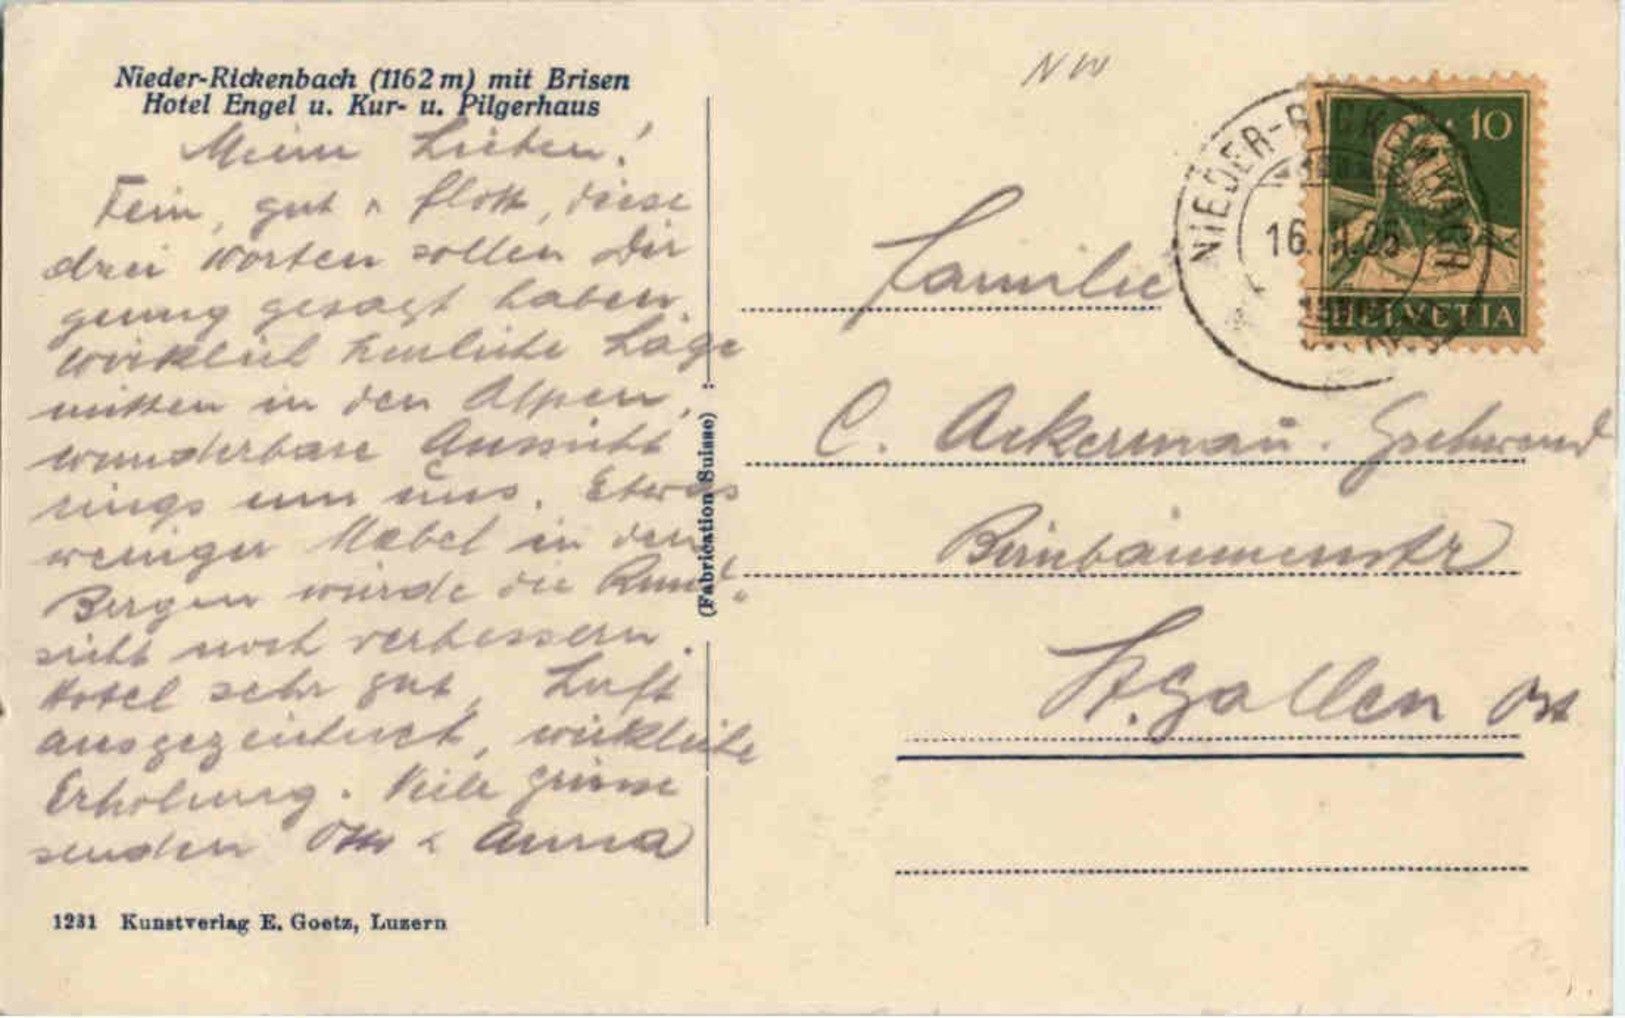 Nieder-Rickenbach (1162 m) mit Brisen
Hotel Engel u. Kur- u. Pilgerhaus
Meine Lieben!
Fein, gut & flott, diese
drei Worten sollen Dir
genug gesagt haben.
wirklich herrliche Lage
mitten in den Alpen,
wunderbare Aussicht
rings um uns. Etwas
weniger Nebel in den
Bergen würde die Rund"
sicht noch verbessern.
Hotel sehr gut, Luft
ausgezeichnet, wirkliche
Erholung. Viele Grüsse
senden Otto & Anna
1231 Kunstverlag E. Goetz, Luzern
(Fabrication Suisse)
NW
NIEDER-RICKENBACH
16.
10
HELVETIA
Familie
C. Ackermañ. Gschwend
Birnbäumenstr
St. Gallen Ost